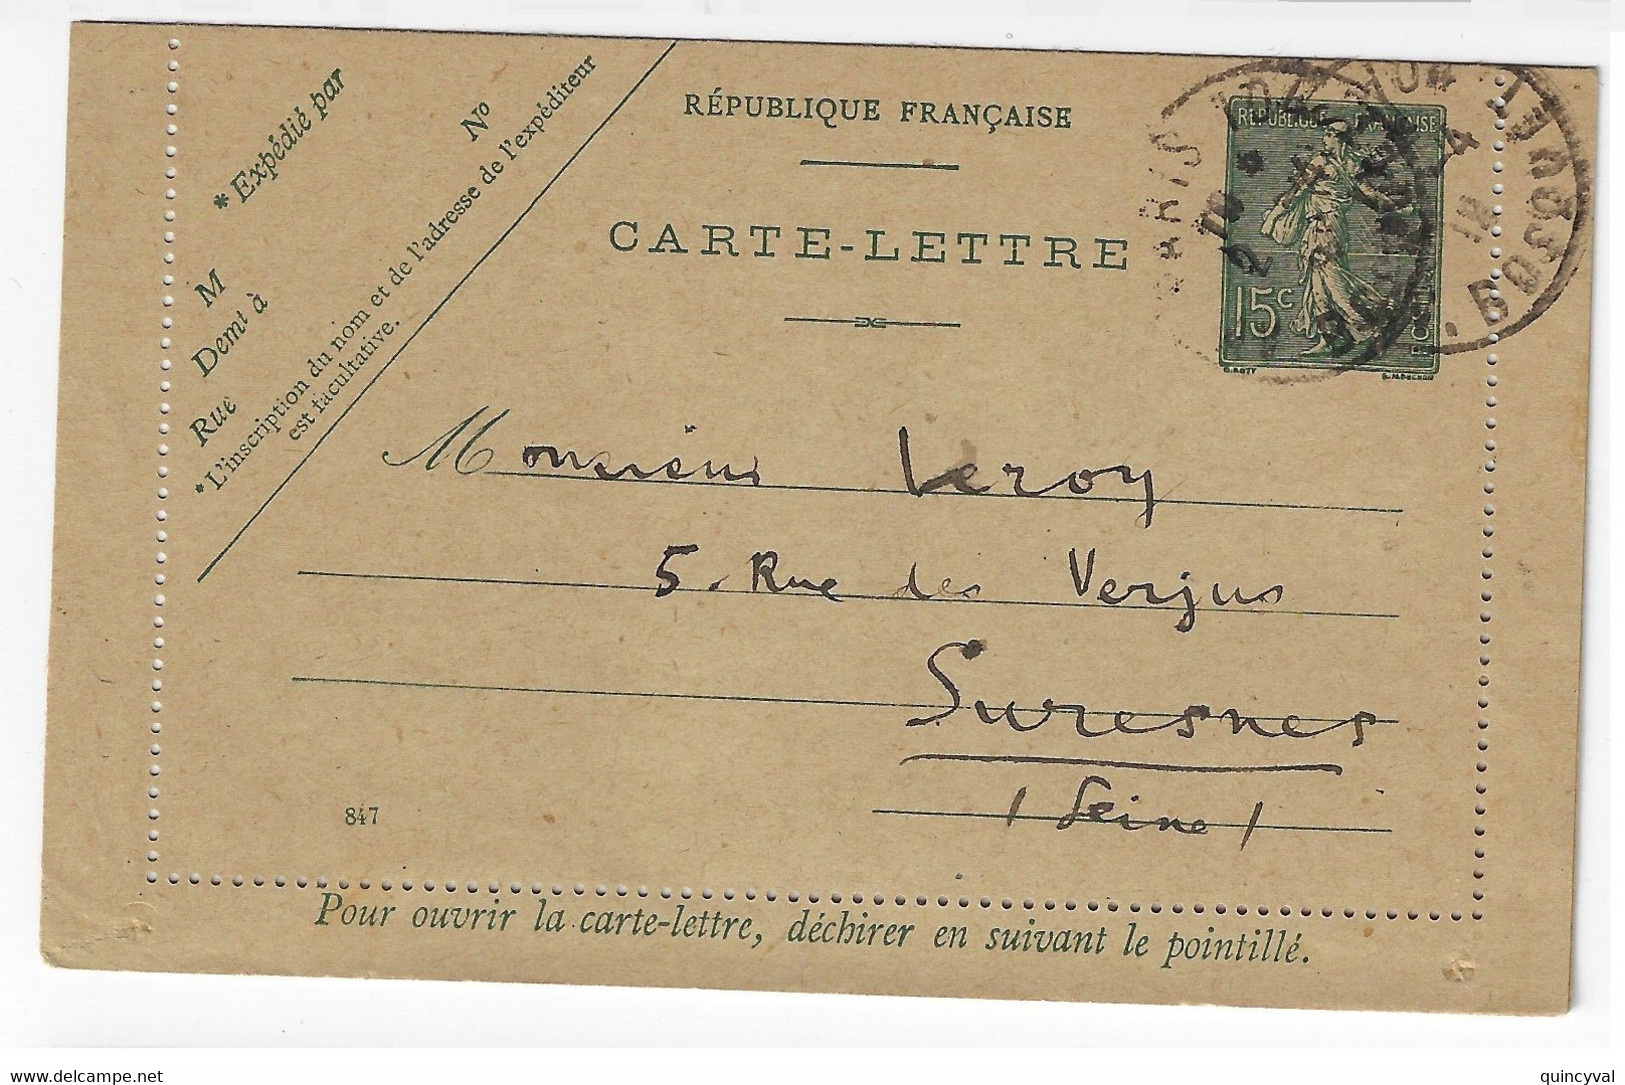 RÉPUBLIQUE FRANÇAISE
CARTE-LETTRE
* Expédié par
No
M
Demt à
Rue
*L'inscription du nom et de l'adresse de l'expéditeur
est facultative.
REPUBLIQUE FRANÇAISE
15c
O. ROTY
Monsieur Leroy
5. Rue des Verjus
Suresnes
(Seine)
847
Pour ouvrir la carte-lettre, déchirer en suivant le pointillé.
www.delcampe.net
quincyval